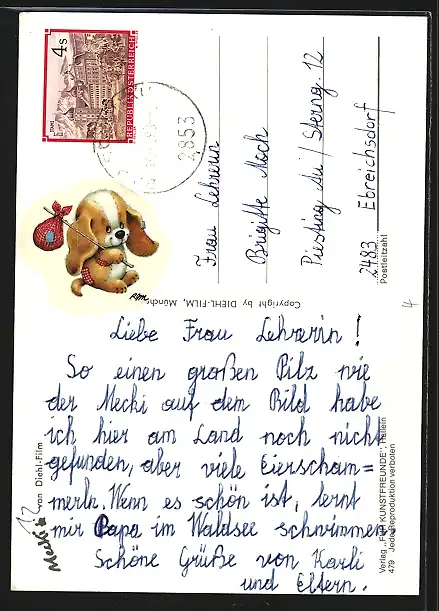 4 s
REPUBLIK ÖSTERREICH
2853
Frau Lehrerin
Brigitte Koch
Piesting Au / Sterng. 12
2483 Ebreichsdorf
Postleitzahl
Copyright by DIEHL-FILM, Münch
4
Liebe Frau Lehrerin!
So einen großen Pilz wie
der Mecki auf dem Bild habe
ich hier am Land noch nicht
gefunden, aber viele Eierscham=
merln. Wenn es schön ist, lernt
mir Papa im Waldsee schwimmen.
Schöne Grüße von Karli
und Eltern.
Mecki
von Diehl-Film
12
Verlag „FÜR KUNSTFREUNDE“, Hallein
479 Jede Reproduktion verboten